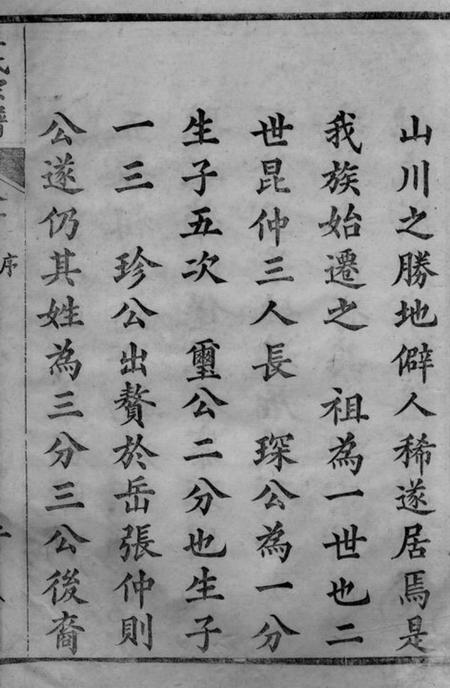 山川之勝地僻人稀遂居焉是
我族始遷之　祖為一世也二
世昆仲三人長　琛公為一分
生子五次　璽公二分也生子
一三　珍公出贅於岳張仲則
公遂仍其姓為三分三公後裔
氏宗譜
序